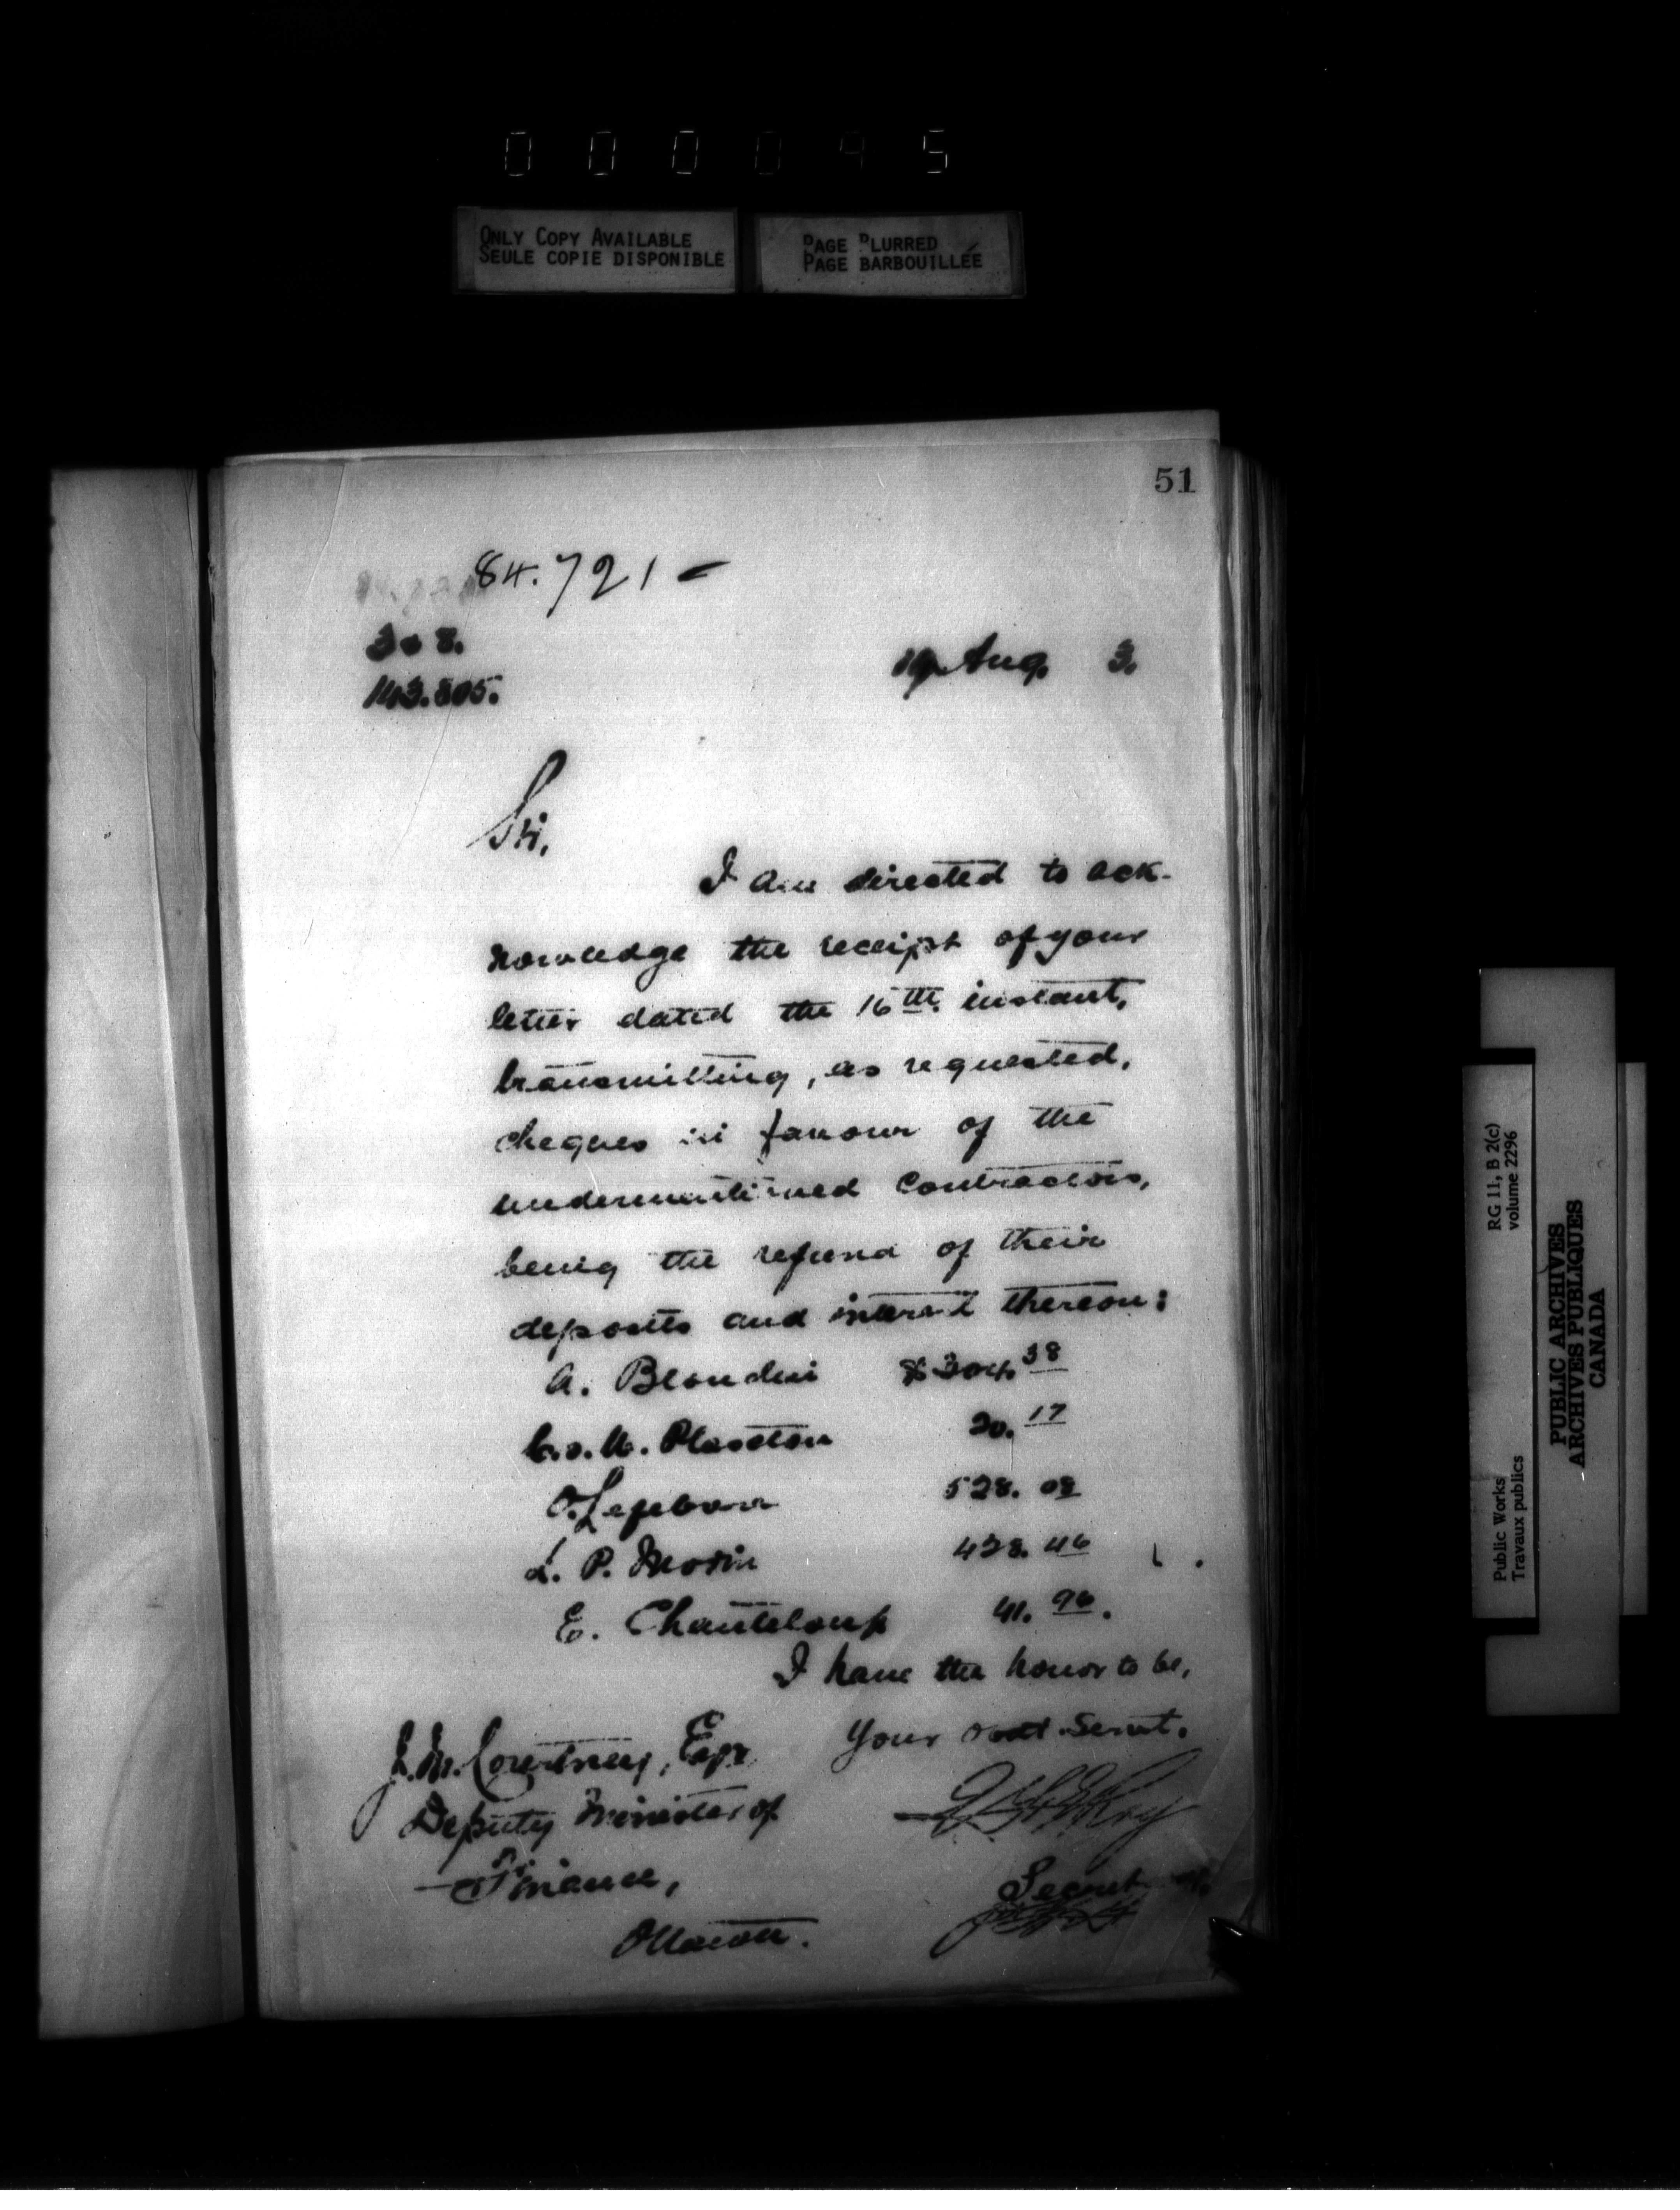 000045
ONLY COPY AVAILABLE
SEULE COPIE DISPONIBLE
PAGE BLURRED
PAGE BARBOUILLÉE
51
84.721 -
308.
143.805.
19 Aug. 3.
Sir,
I am directed to ack-
nowledge the receipt of your
letter dated the 16th instant,
transmitting, as requested,
cheques in favour of the
undermentioned Contractors,
being the refund of their
deposits and interest thereon:
A. Blondin $304.38
20.17
O. Lefebvre 528.08
L. P. Morin 428.46
E. Chanteloup 41.96.
I have the honor to be,
Your obdt. Servt.
J. M. Courtney, Esqr
Deputy Minister of
Finance,
Ottawa.
Secret
RG 11, B 2(c)
volume 2296
Public Works
Travaux publics
PUBLIC ARCHIVES
ARCHIVES PUBLIQUES
CANADA